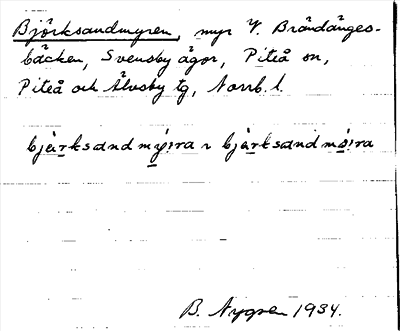 Björksandmyren, myr V. Brändänges-
bäcken, Svensby ägor, Piteå sn,
Piteå och Älvsby tg, Norrb. l.
bjårksandmy̱:ra ~ bjårksandmø̱:ra
B. Nygren 1934.